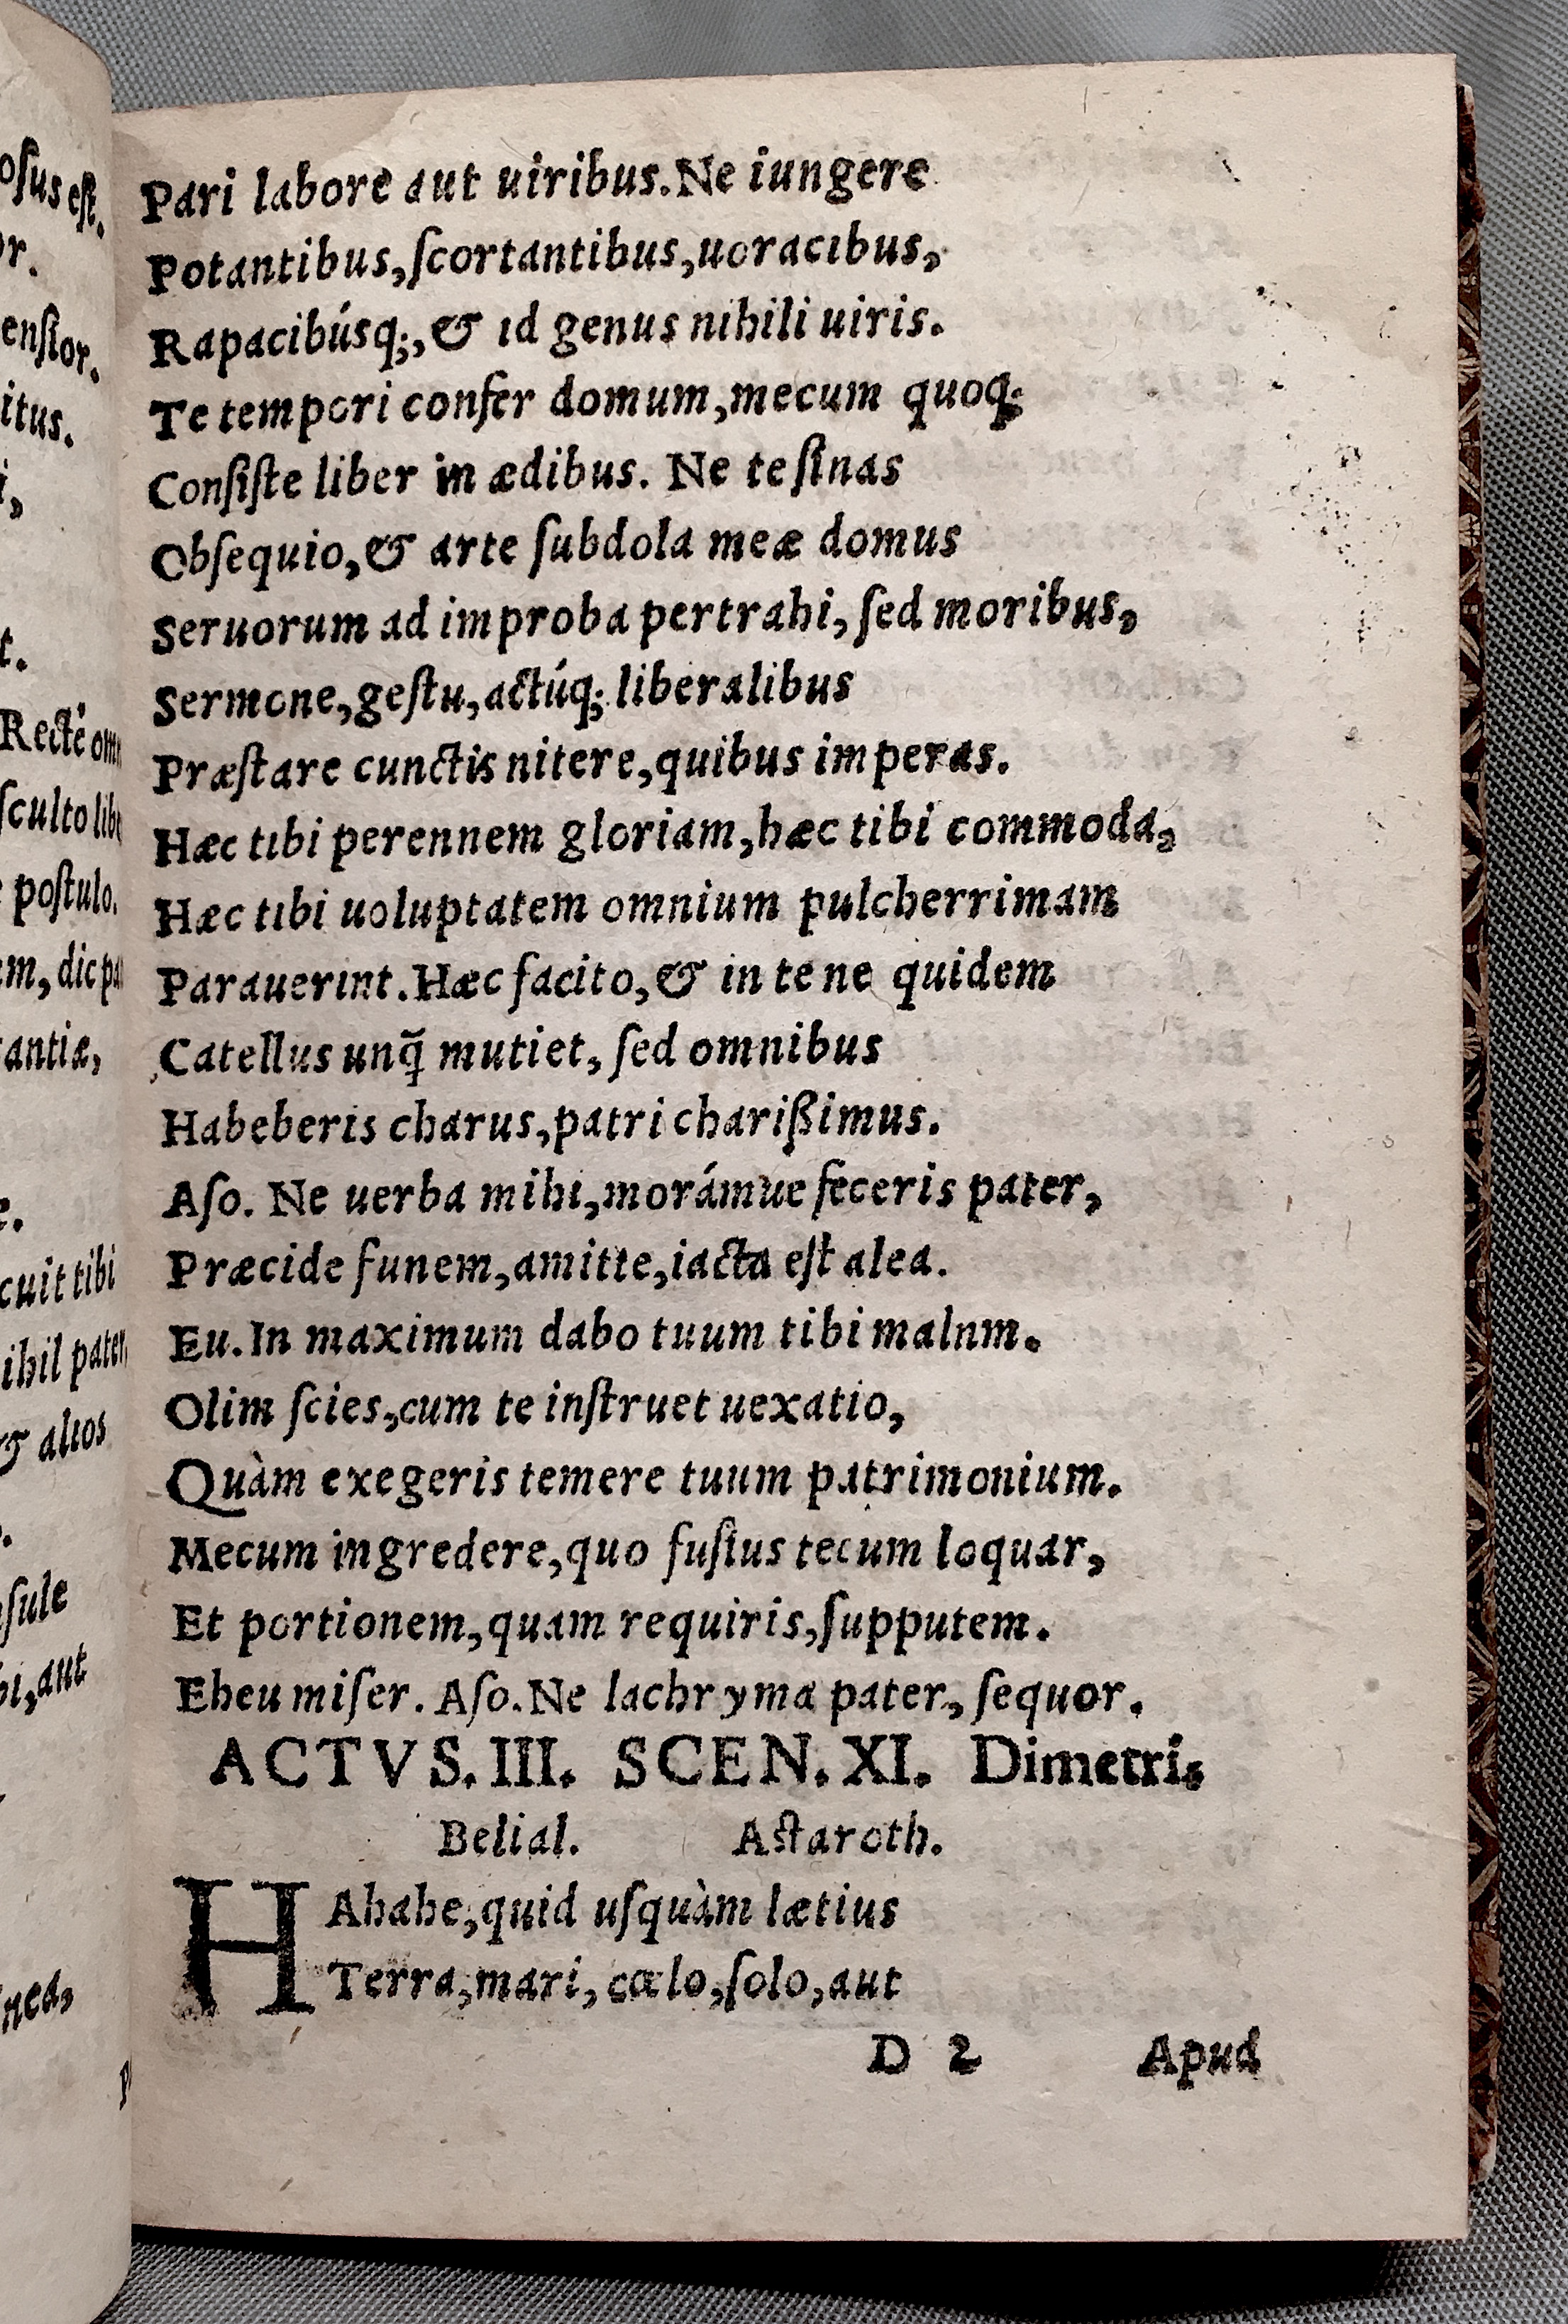 Pari labore aut uiribus. Ne iungere
Potantibus, ſcortantibus, uoracibus,
Rapacibúsq;, & id genus nihili uiris.
Te tempori confer domum, mecum quoq;
Conſiſte liber in ædibus. Ne te ſinas
Obſequio, & arte ſubdola meæ domus
Seruorum ad improba pertrahi, ſed moribus,
Sermone, geſtu, actúq; liberalibus
Præſtare cunctis nitere, quibus imperas.
Hæc tibi perennem gloriam, hæc tibi commoda,
Hæc tibi uoluptatem omnium pulcherrimam
Parauerint. Hæc facito, & in te ne quidem
Catellus unq̃ mutiet, ſed omnibus
Habeberis charus, patri charißimus.
Aſo. Ne uerba mihi, morámue feceris pater,
Præcide funem, amitte, iacta eſt alea.
Eu. In maximum dabo tuum tibi malnm.
Olim ſcies, cum te inſtruet uexatio,
Quàm exegeris temere tuum patrimonium.
Mecum ingredere, quo fuſius tecum loquar,
Et portionem, quam requiris, ſupputem.
Eheu miſer. Aſo. Ne lachryma pater, ſequor.
ACTVS. III. SCEN. XI. Dimetri.
Belial. Aſtaroth.
HAhahe, quid uſquàm lætius
Terra, mari, cœlo, ſolo, aut
D 2 Apud
oſus eſt.
or.
enſior.
itus.
i,
t.
Rectè om
ſculto lib
poſtulo.
em, dic pa
tantiæ,
e.
cuit tibi
ihil pater,
& alios
ſule
bi, aut
nea,